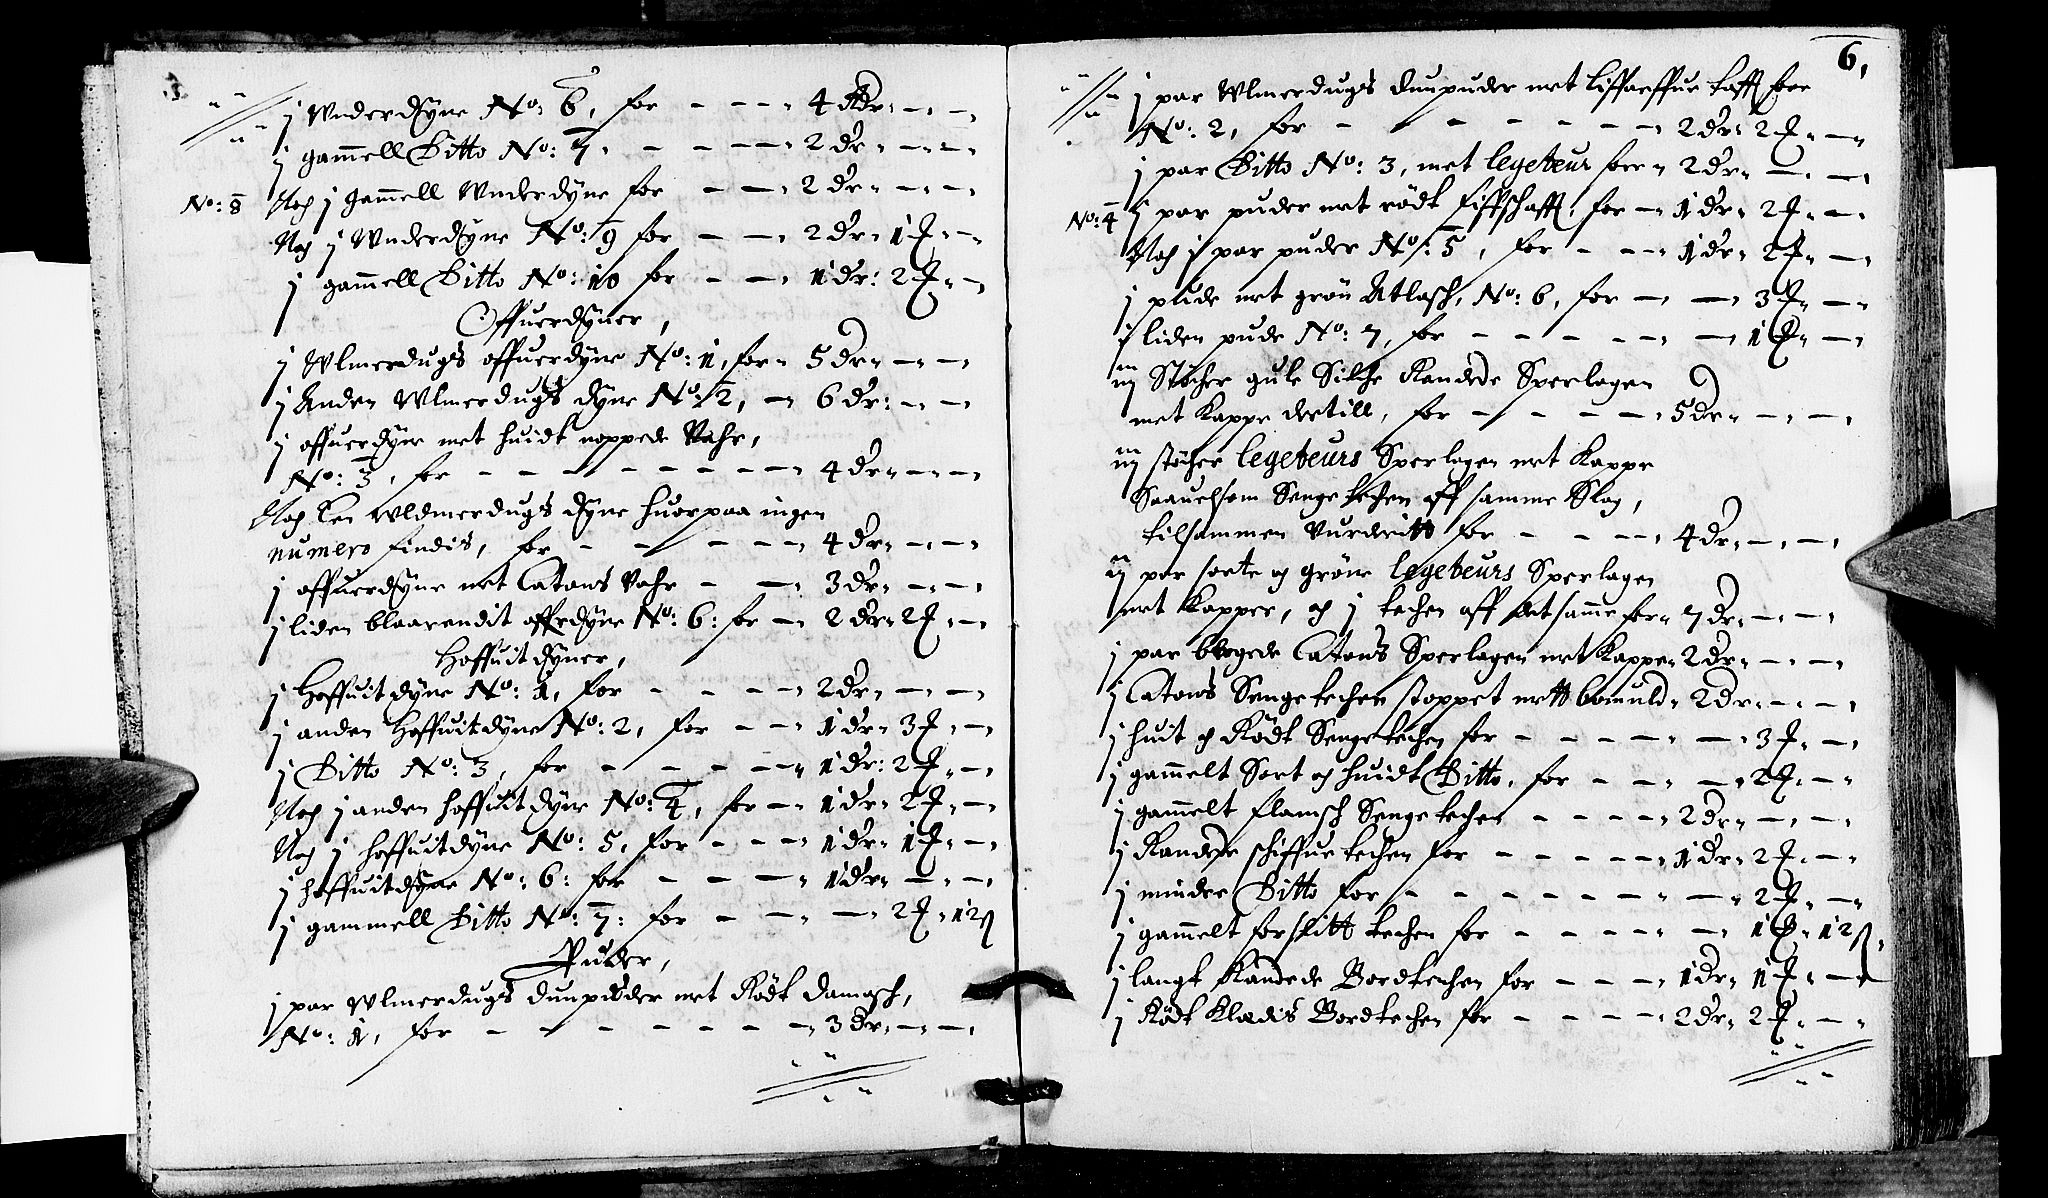 j Wnderdÿne No: 6, for - - - 4 dr - -
j gammell Ditto No: 7, - - - 2 dr - -
No: 8 Noch j gammell Wnderdÿne for - - 2 dr - -
Noch j Wnderdÿne No: 9 for - - 2 dr 1 ℔ -
j gammell Ditto No: 10 for - - 1 dr: 2 ℔ -
Offuerdÿner,
j Wlmerdugs offuerdÿne No: 1, for 5 dr - -
j Anden Wlmerdugs dÿne No: 2, - 6 dr: - -
j offuerdÿne met huidt noppede Vahr,
No: 3, for - - - - - - - 4 dr - -
Noch Een Wldmerdugs dÿne huorpaa ingen
numero findis, for - - - - 4 dr - -
j offuerdÿne met Catons Vahr - - 3 dr - -
j liden blaarandit offrdÿne No: 6: for - 2 dr 2 ℔ -
Hoffuit dÿner,
j Hoffuit dÿne No: 1, for - - - - 2 dr - -
j anden Hoffuitdÿne No: 2, for - - 1 dr 3 ℔ -
j Ditto No: 3, for - - - - 1 dr: 2 ℔ -
Noch j anden hoffuit dÿne No: 4, for - 1 dr 2 ℔ -
Noch j hoffuitdÿne No: 5, for - - - 1 dr 1 ℔ -
j hoffuitdÿne No: 6: for - - - - 1 dr - -
j gammell Ditto No: 7: for - - - 2 ℔ 12 ß
Puder,
j par Wlmerdugs dunpuder met Rödt damasch,
No: 1, for - - - - - - - 3 dr - -
6,
j par Wlmerdugs dunpuder met taff foer
No: 2, for - - - - - - - 2 dr 2 ℔ -
j par Ditto No: 3, met legeteur foer 2 dr - -
No: 4 j par puder met rödt for - 1 dr 2 ℔ -
Noch j par puder No: 5, for - - - 1 dr 2 ℔ -
j pude met grön Atlasch, No: 6, for - - 3 ℔ -
j liden pude No: 7, for - - - - - - 1 ℔ -
iij Stöcher gule Silche Randede Sperlagen
met Kappe dertill, for - - - - 5 dr - -
iij stöcher legeteurs Sperlagen met Kappe
Saauelsom Senge techen aff samme Slag,
tilsammen Vurderitt for - - - 4 dr - -
ij par sorte och gröne legeteurs Sperlagen
met Kapper, och j techen aff det samme for 7 dr - -
j par blogede Catons Sperlagen met Kappe 2 dr - -
j Catons Senge techen stoppet mett bomuld 2 dr - -
j huit och Rödt Sengetechen for - - - - - 3 ℔ -
j gammelt Sort och huidt Ditto, for - - - 2 ℔ -
j gammelt flamsch Senge techen - - - - 2 dr - -
j Randede schiffue techen for - - - - 1 dr 2 ℔ -
j mindre Ditto for - - - - - - - 2 ℔ -
j gammelt forslitt techen for - - - - - 1 ℔ 12 ß,
j langt Randede Bordtechen for - - - 1 dr 1 ℔ -
j Rödt Kladis Bordtechen for - - - - 2 dr 2 ℔ -